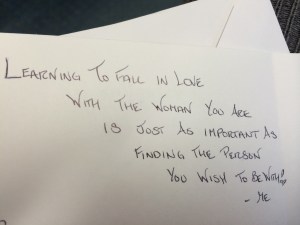 LEARNING TO FALL IN LOVE
WITH THE WOMAN YOU ARE
IS JUST AS IMPORTANT AS
FINDING THE PERSON
YOU WISH TO BE WITH!
- ME